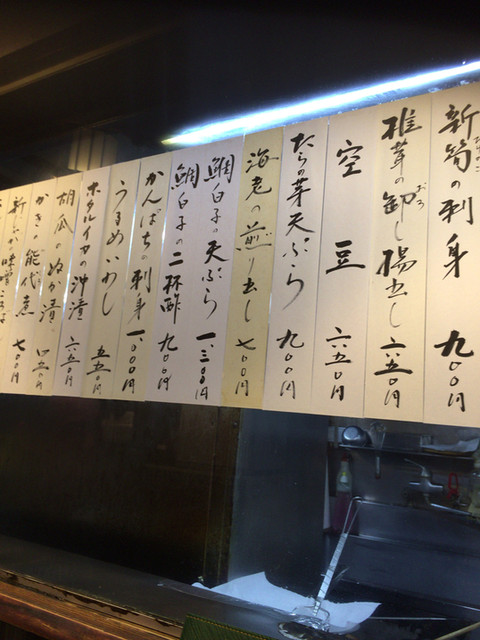 新筍の刺身 九〇〇円
椎茸の卸し揚出し 六五〇円
空豆 六五〇円
たらの芽天ぷら 九〇〇円
海老の煎り出し 七〇〇円
鯛白子の天ぷら 一、三〇〇円
鯛白子の二杯酢 九〇〇円
かんぱちの刺身 一、〇〇〇円
うるめいわし 五五〇円
ホタルイカの沖漬 六五〇円
胡瓜のぬか漬 四五〇円
かき 能代煮
七〇〇円